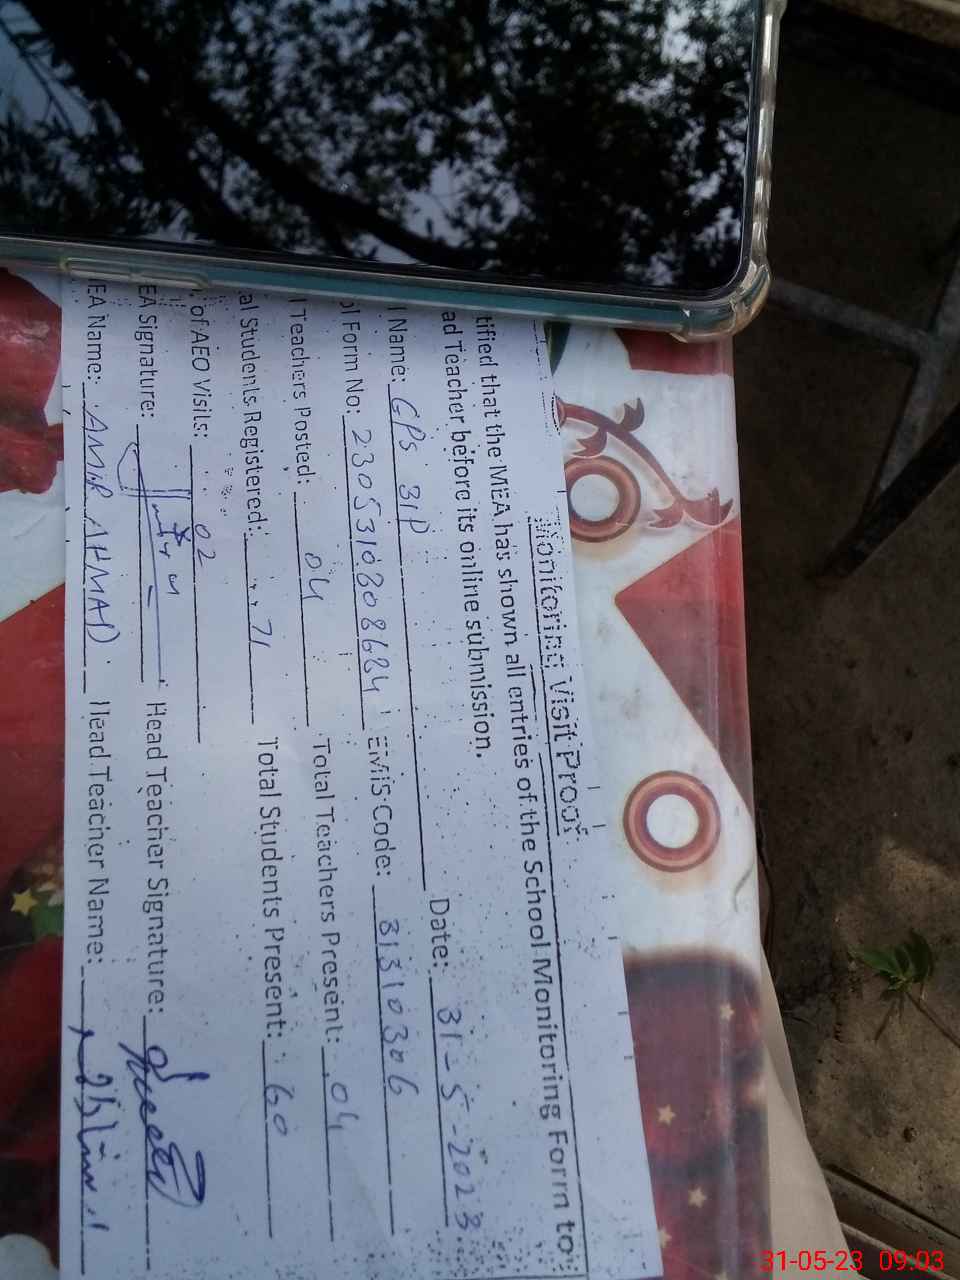 Monitoring Visit Proof
tified that the MEA has shown all entries of the School Monitoring Form to
ad Teacher before its online submission.
l Name: GPS 31P Date: 31-5-2023
ol Form No: 2305310808684 EMIS Code: 31310306
l Teachers Posted: 04 Total Teachers Present: 04
al Students Registered: 71 Total Students Present: 60
. of AEO Visits: 02
EA Signature: Head Teacher Signature:
EA Name: AMIR AHMAD Head Teacher Name:
31-05-23 09:03